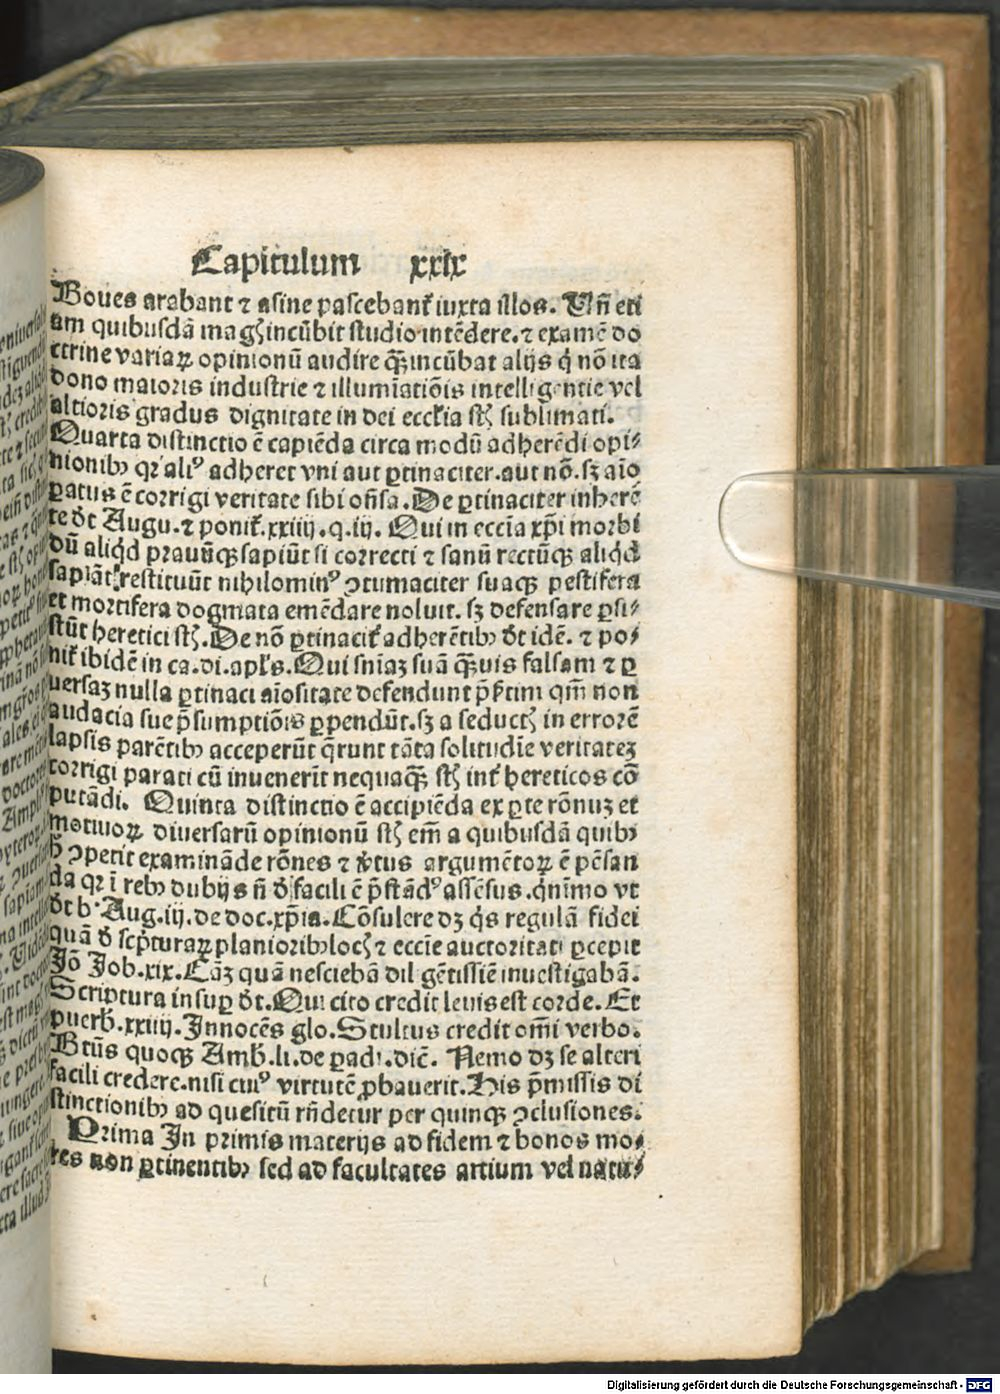 Capitulum xxix
Boues arabant ⁊ asine pascebant᷑ iuxta illos. Vn̄ eti
am quibusdā mag᷒ incūbit studio intēdere. ⁊ examē do
ctrine variaꝝ opinionū audire qȝ̄ incūbat alijs q̇ nō ita
dono maioris industrie ⁊ illumīatiōis intelligentie vel
altioris gradus dignitate in dei ecc̄lia st᷒ sublimati.
Quarta distinctio ē capiēda circa modū adherēdi opi⸗
nionibꝫ qꝛ aliꝰ adheret vni aut ꝑtinaciter. aut nō. sꝫ aīo
ꝑatus ē corrigi veritate sibi on̄sa. De ꝑtinaciter inherē
te dt̄ Augu. ⁊ ponit᷑. xxiiij. q. iij. Qui in ecc̄ia xp̄i morbi
dū aliqd̄ prauūqꝫ sapiūt si correcti ⁊ sanū rectūqꝫ aliqd̄
sapiāt. restituūt nihilominꝰ ꝯtumaciter suaqꝫ pestifera
et mortifera dogmata emēdare nolūt. sꝫ defensare ꝑsi⸗
stūt heretici st᷒. De nō ꝑtinacit᷑ adherētibꝫ dt̄ idē. ⁊ po⸗
nit᷑ ibidē in ca. di. apl̄s. Qui sn̄iaꝫ suā qȝ̄uis falsam ⁊ ꝑ
uersaꝫ nulla ꝑtinaci aīositate defendunt p̄s̄tim qm̄ non
audacia sue p̄sumptiōis ꝑpendūt. sꝫ a seduct᷒ in errorē
lapsis parētibꝫ acceperūt q̄runt tāta solitudīe veritateꝫ
corrigi parati cū inuenerīt nequaqȝ̄ st᷒ int᷑ hereticos cō
putādi. Quinta distinctio ē accipiēda ex ꝑte rōnuꝫ et
motiuoꝝ diuersarū opinionū st᷒ em̄ a quibusdā quibꝫ
h̄ ꝯpetit examināde rōnes ⁊ v̄tus argumētoꝝ ē pēsan
da qꝛ ī rebꝫ dubijs n̄ d̄ facili ē p̄stādꝰ assēsus. qnīmo vt
dt̄ b. Aug. iij. de doc. xp̄ia. Cōsulere dꝫ q̇s regulā fidei
quā d̄ scp̄turaꝝ planioribꝫ loc᷒ ⁊ ecc̄ie auctoritati ꝑcepit
Iō Job. xix. Cāꝫ quā nesciebā diligētissiē inuestigabā.
Scriptura insuꝑ dt̄. Qui cito credit leuis est corde. Et
ꝓuerb̄. xxiiij. Innocēs glo. Stultus credit om̄i verbo.
Bt̄us quoqꝫ Amb̄. li. de ꝑadi. dic̄. Nemo dꝫ se alteri
facili credere. nisi cuiꝰ virtutē ꝓbauerit. His p̄missis di
stinctionibꝫ ad quesitū rn̄detur per quinqꝫ ꝯclusiones.
Prima In primis materijs ad fidem ⁊ bonos mo⸗
res non ꝑtinentibꝫ sed ad facultates artium vel natu⸗
Digitalisierung gefördert durch die Deutsche Forschungsgemeinschaft - DFG